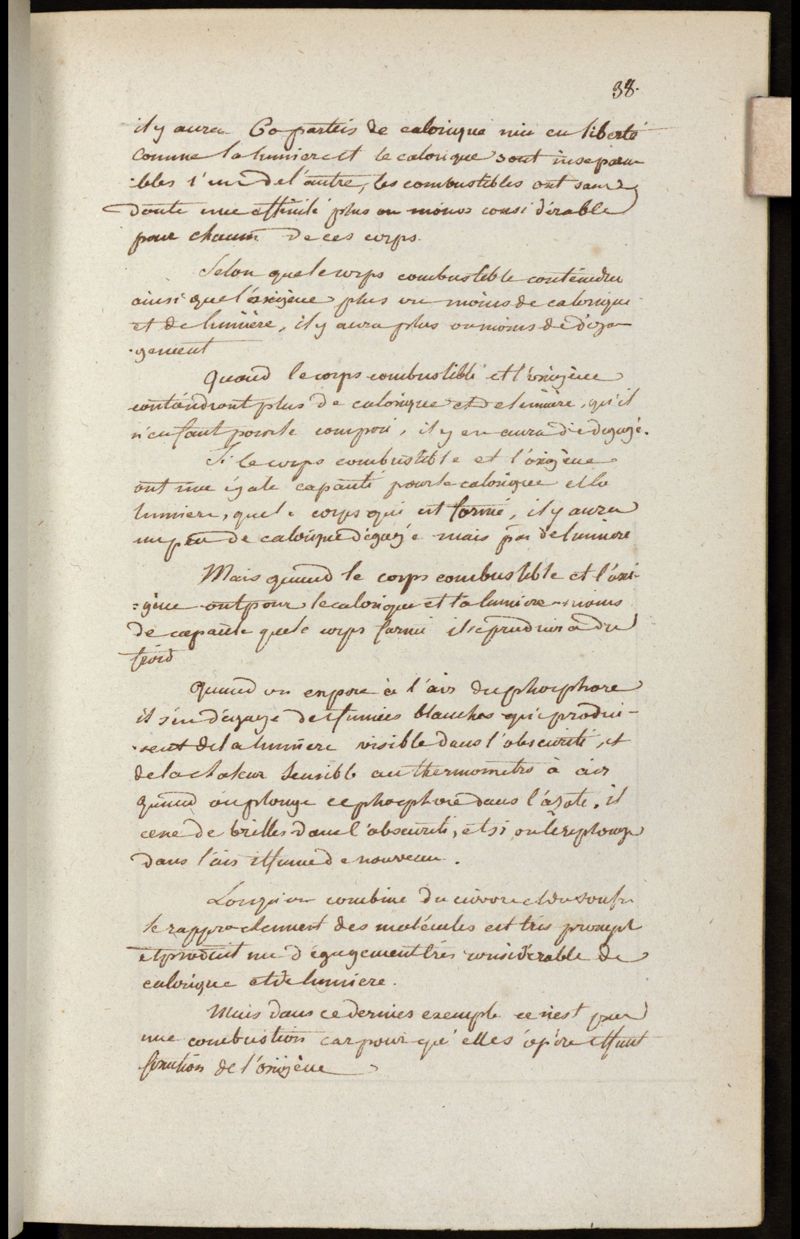 38.
il y aura 60 parties de calorique mis en liberté
comme la lumiere et le calorique sont insepara
-bles l'un de l'autre, les combustibles ont sans
doute une affinité plus ou moins considérable
pour chacun de ces corps.
Selon que le corps combustible contiendra
ainsi que l'oxigène plus ou moins de calorique
et de lumière, il y aura plus ou moins de déga
-gement
Quand le corps combustible et l'oxigène
contiendront plus de calorique et de lumière, qu'il
n'en faut pour le composé, il y en aura de dégagé.
Si le corps combustible et l'oxigène
ont une égale capacité pour le calorique et la
lumiere, que le corps qui est formé, il y aura
un peu de calorique dégagé mais pas de lumiere
Mais quand le corps combustible et l'oxi-
=gène ont pour le calorique et la lumiere moins
de capacité que le corps formé il se produira du
froid
Quand on expose à l'air du phosphore
il s'en dégage des fumées blanches qui produi-
-sent de la lumière visible dans l'obscurité, et
de la chaleur sensible au thermometre à air
quand on plonge ce phosphore dans l'azote, il
cesse de briller dans l'obscurité, et si on le replonge
dans l'air il fume de nouveau.
Lorsqu'on combine du cuivre et du soufre
le rapprochement des molécules est très prompt
et produit un dégagement très considerable de
calorique et de lumiere.
Mais dans ce dernier exemple ce n'est pas
une combustion car pour qu'elle s'opère il faut
fixation de l'oxigène